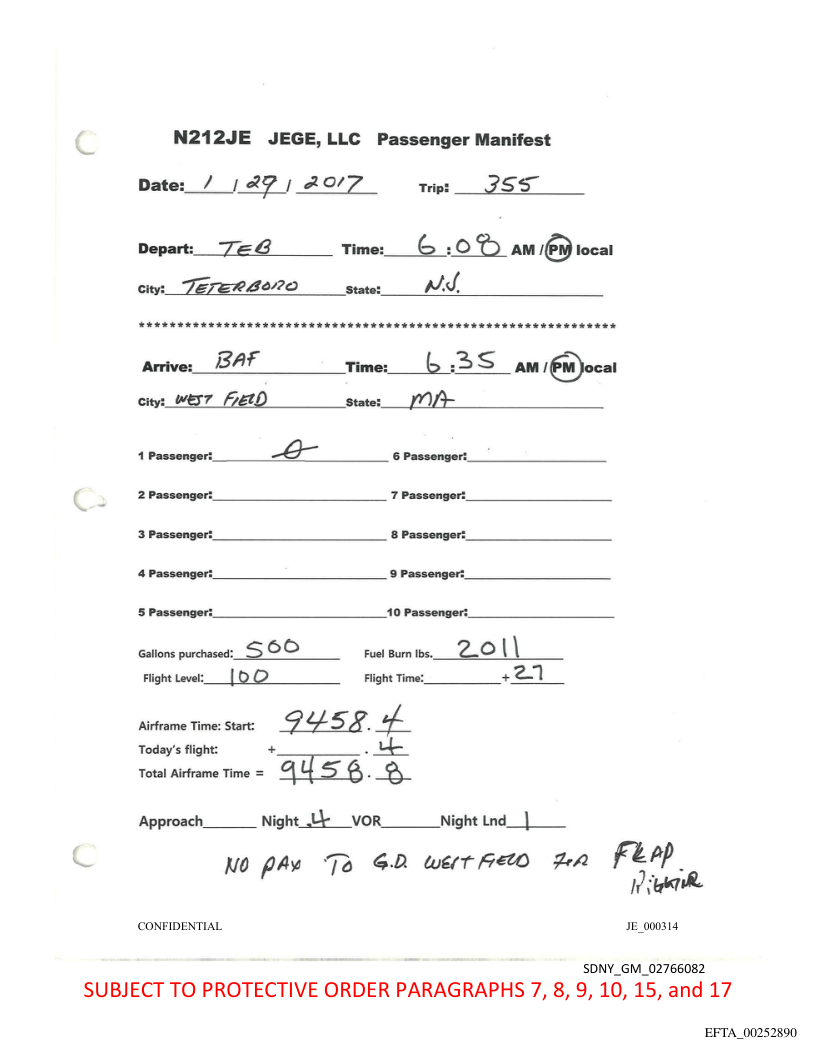 N212JE JEGE, LLC Passenger Manifest
Date: 1 / 29 / 2017 Trip: 355
Depart: TEB Time: 6:08 AM / PM local
City: TETERBORO State: N.J.
****************************************************************
Arrive: BAF Time: 6:35 AM / PM local
City: WEST FIELD State: MA
1 Passenger: 0 6 Passenger:
2 Passenger: 7 Passenger:
3 Passenger: 8 Passenger:
4 Passenger: 9 Passenger:
5 Passenger: 10 Passenger:
Gallons purchased: 500 Fuel Burn lbs. 2011
Flight Level: 100 Flight Time: + 27
Airframe Time: Start: 9458.4
Today's flight: + .4
Total Airframe Time = 9458.8
Approach Night .4 VOR Night Lnd 1
NO PAX TO G.D. WESTFIELD FOR FLAP
CONFIDENTIAL JE_000314
SDNY_GM_02766082
SUBJECT TO PROTECTIVE ORDER PARAGRAPHS 7, 8, 9, 10, 15, and 17
EFTA_00252890